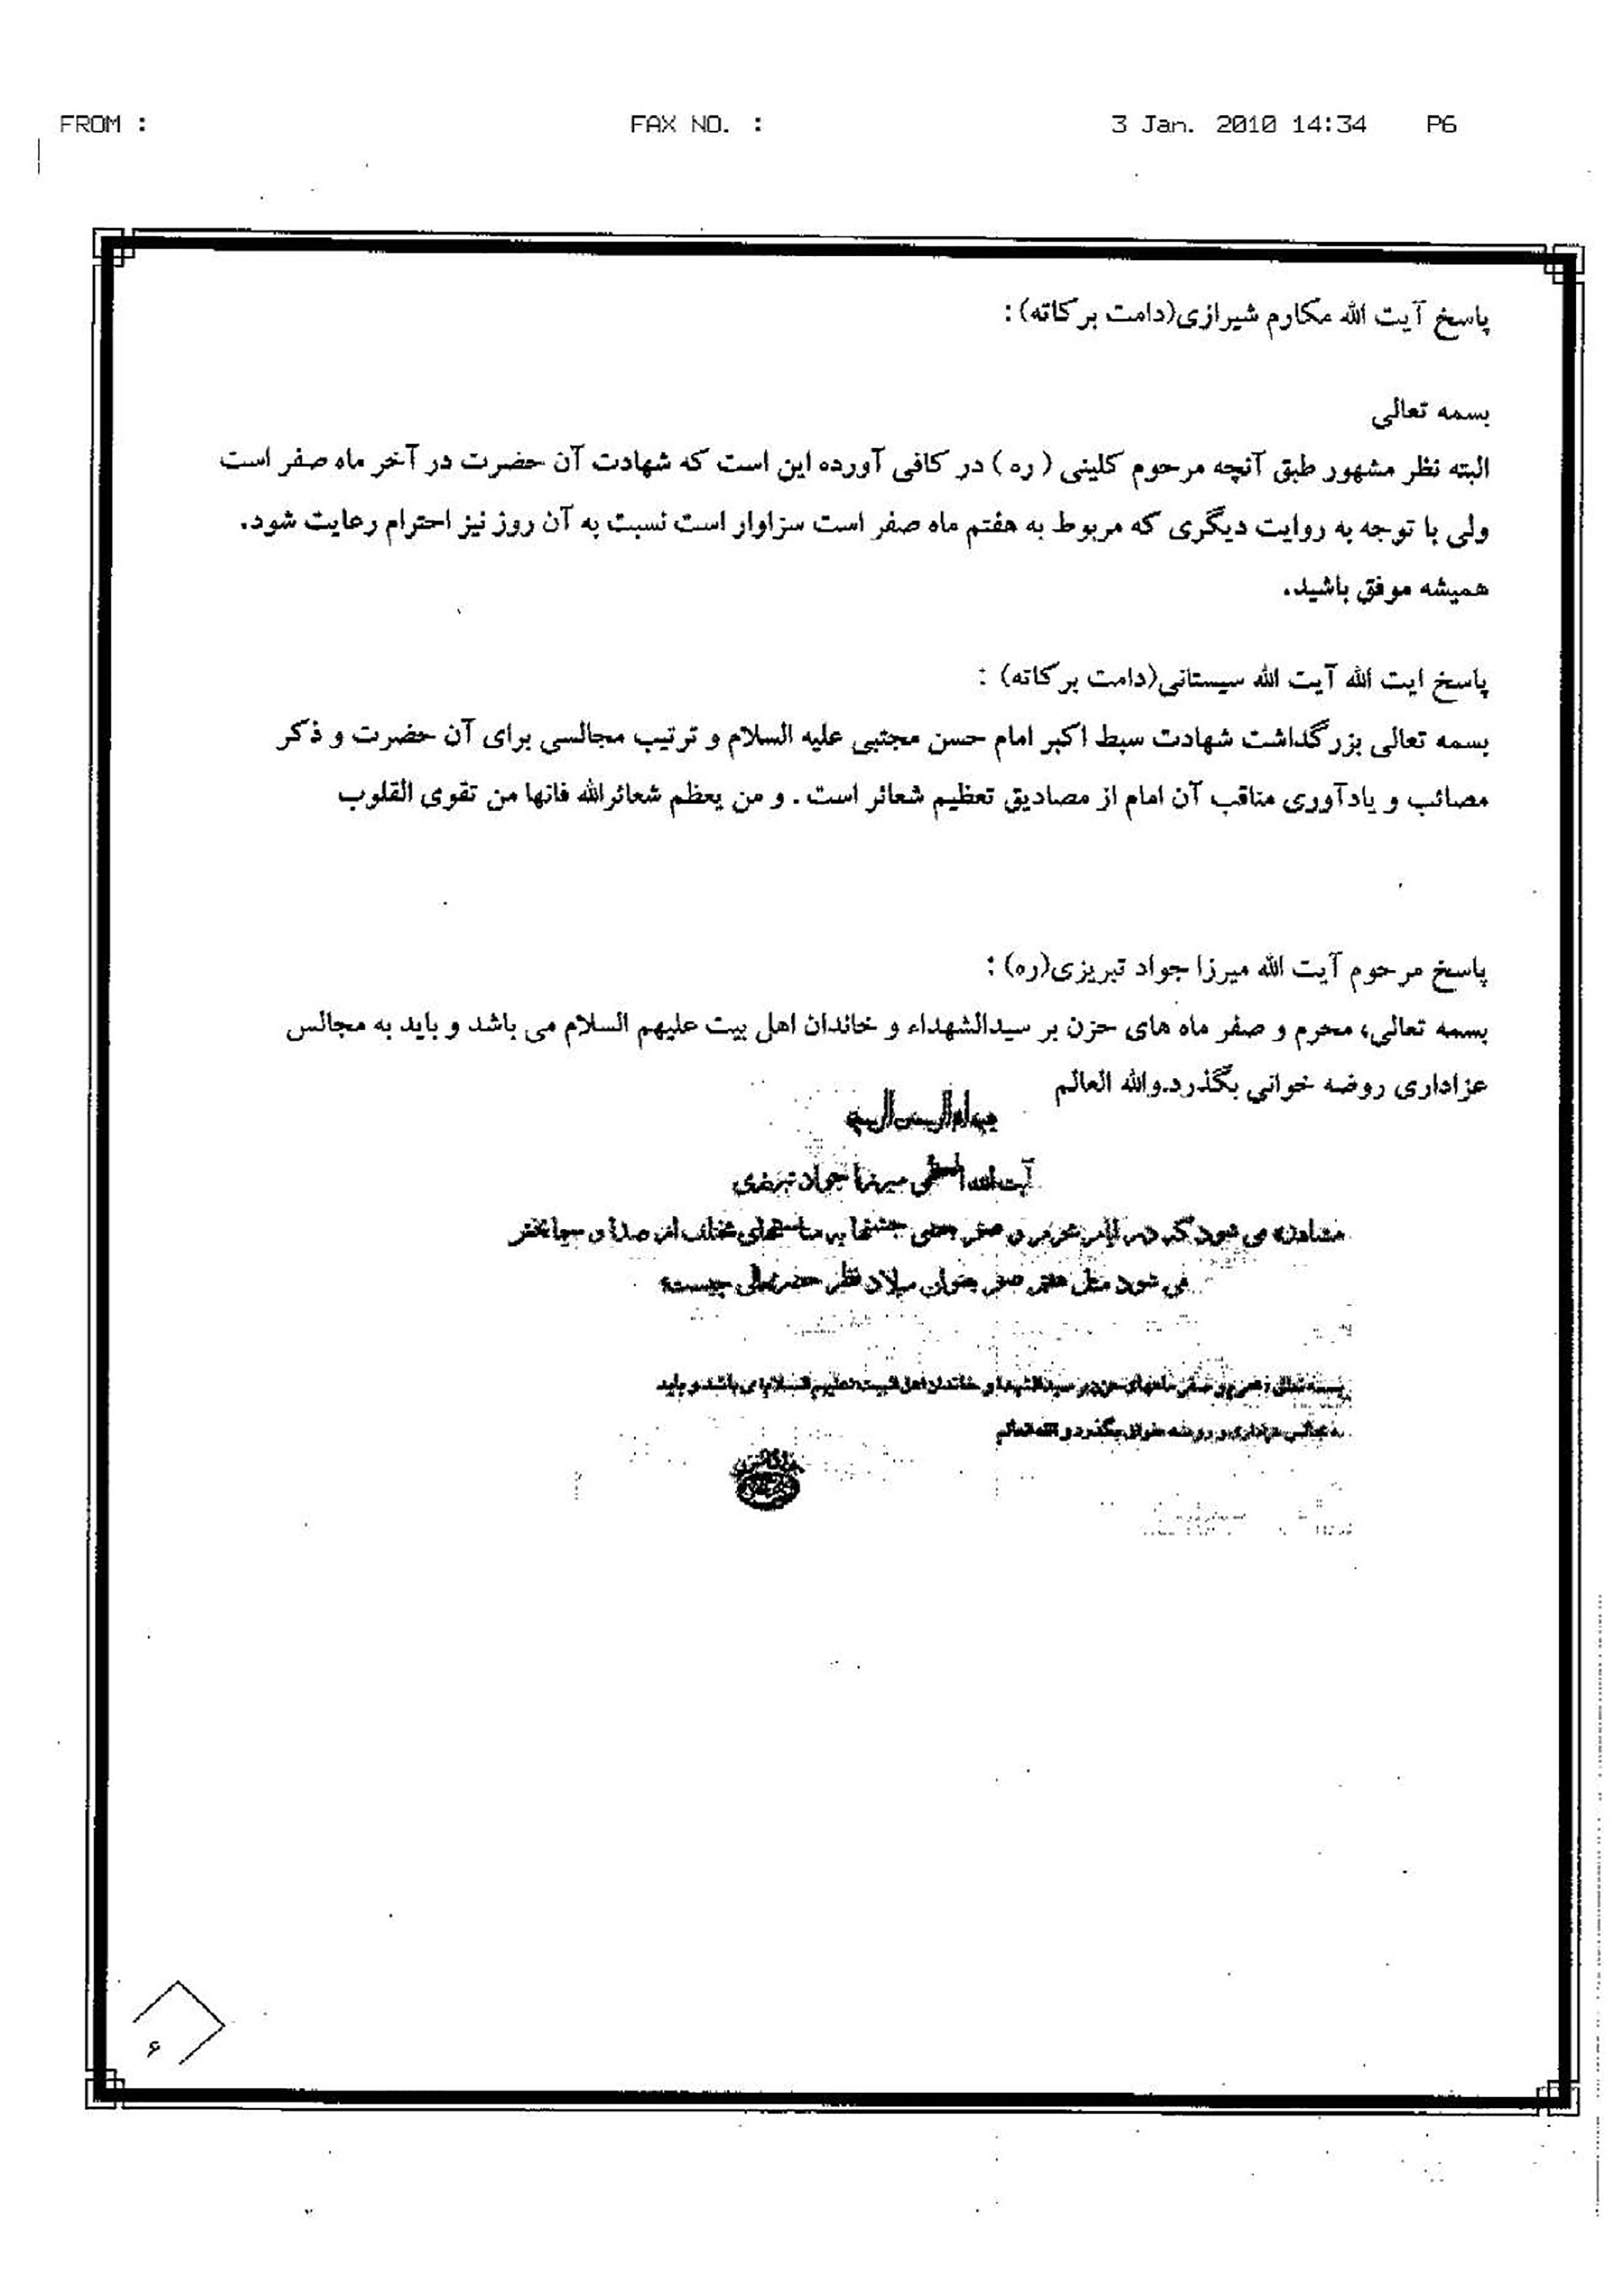 FROM : FAX NO. : 3 Jan. 2010 14:34 P6
پاسخ آیت الله مکارم شیرازی(دامت برکاته):
بسمه تعالی
البته نظر مشهور طبق آنچه مرحوم کلینی ( ره ) در کافی آورده این است که شهادت آن حضرت در آخر ماه صفر است
ولی با توجه به روایت دیگری که مربوط به هفتم ماه صفر است سزاوار است نسبت به آن روز نیز احترام رعایت شود.
همیشه موفق باشید.
پاسخ ایت الله آیت الله سیستانی(دامت برکاته) :
بسمه تعالی بزرگداشت شهادت سبط اکبر امام حسن مجتبی علیه السلام و ترتیب مجالسی برای آن حضرت و ذکر
مصائب و یادآوری مناقب آن امام از مصادیق تعظیم شعائر است . و من یعظم شعائرالله فانها من تقوی القلوب
پاسخ مرحوم آیت الله میرزا جواد تبریزی(ره) :
بسمه تعالی، محرم و صفر ماه های حزن بر سیدالشهداء و خاندان اهل بیت علیهم السلام می باشد و باید به مجالس
عزاداری روضه خوانی بگذرد.والله العالم
آیت الله العظمی میرزا جواد تبریزی
مشاهده می شود که در ایام محرم و صفر بعضی جشنها به مناسبتهای مختلف از صدا و سیما پخش
می شود مثل هفتم صفر بعنوان میلاد نظر حضرتعالی چیست؟
بسمه تعالی ، محرم و صفر ماههای حزن بر سیدالشهداء و خاندان اهل البیت علیهم السلام می باشد و باید
به مجالس عزاداری و روضه خوانی بگذرد و الله العالم
۶